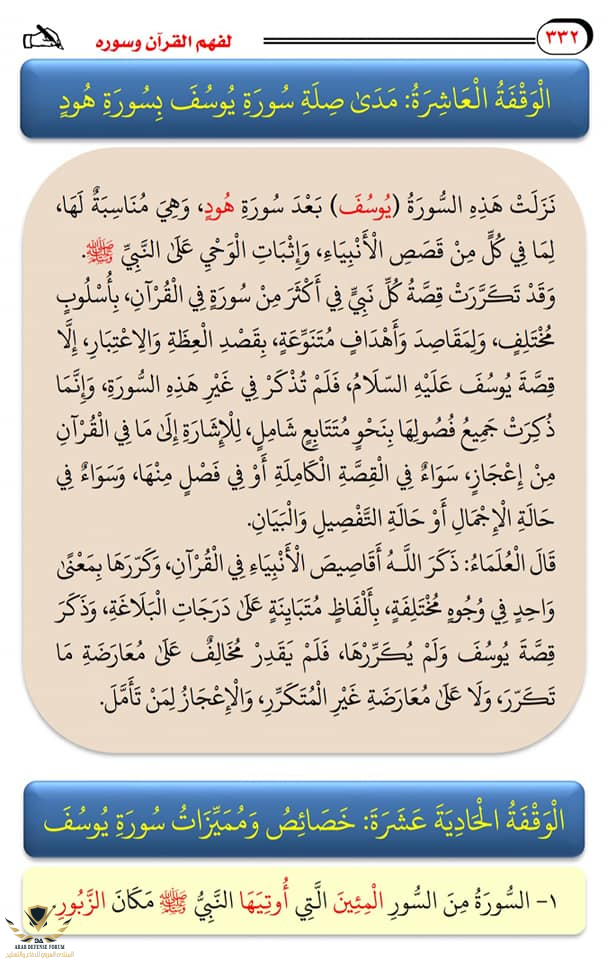 ٣٣٢
لفهم القرآن وسوره
الْوَقْفَةُ الْعَاشِرَةُ: مَدَىٰ صِلَةِ سُورَةِ يُوسُفَ بِسُورَةِ هُودٍ
نَزَلَتْ هَذِهِ السُّورَةُ (يُوسُفَ) بَعْدَ سُورَةِ هُودٍ، وَهِيَ مُنَاسِبَةٌ لَهَا،
لِمَا فِي كُلٍّ مِنْ قَصَصِ الْأَنْبِيَاءِ، وَإِثْبَاتِ الْوَحْيِ عَلَىٰ النَّبِيِّ ﷺ.
وَقَدْ تَكَرَّرَتْ قِصَّةُ كُلِّ نَبِيٍّ فِي أَكْثَرَ مِنْ سُورَةٍ فِي الْقُرْآنِ، بِأُسْلُوبٍ
مُخْتَلِفٍ، وَلِمَقَاصِدَ وَأَهْدَافٍ مُتَنَوِّعَةٍ، بِقَصْدِ الْعِظَةِ وَالِاعْتِبَارِ، إِلَّا
قِصَّةَ يُوسُفَ عَلَيْهِ السَّلَامُ، فَلَمْ تُذْكَرْ فِي غَيْرِ هَذِهِ السُّورَةِ، وَإِنَّمَا
ذُكِرَتْ جَمِيعُ فُصُولِهَا بِنَحْوٍ مُتَتَابِعٍ شَامِلٍ، لِلْإِشَارَةِ إِلَىٰ مَا فِي الْقُرْآنِ
مِنْ إِعْجَازٍ، سَوَاءٌ فِي الْقِصَّةِ الْكَامِلَةِ أَوْ فِي فَصْلٍ مِنْهَا، وَسَوَاءٌ فِي
حَالَةِ الْإِجْمَالِ أَوْ حَالَةِ التَّفْصِيلِ وَالْبَيَانِ.
قَالَ الْعُلَمَاءُ: ذَكَرَ اللَّهُ أَقَاصِيصَ الْأَنْبِيَاءِ فِي الْقُرْآنِ، وَكَرَّرَهَا بِمَعْنًى
وَاحِدٍ فِي وُجُوهٍ مُخْتَلِفَةٍ، بِأَلْفَاظٍ مُتَبَايِنَةٍ عَلَىٰ دَرَجَاتِ الْبَلَاغَةِ، وَذَكَرَ
قِصَّةَ يُوسُفَ وَلَمْ يُكَرِّرْهَا، فَلَمْ يَقْدِرْ مُخَالِفٌ عَلَىٰ مُعَارَضَةِ مَا
تَكَرَّرَ، وَلَا عَلَىٰ مُعَارَضَةِ غَيْرِ الْمُتَكَرِّرِ، وَالْإِعْجَازُ لِمَنْ تَأَمَّلَ.
الْوَقْفَةُ الْحَادِيَةَ عَشَرَةَ: خَصَائِصُ وَمُمَيِّزَاتُ سُورَةِ يُوسُفَ
١- السُّورَةُ مِنَ السُّوَرِ الْمِئِينَ الَّتِي أُوتِيَهَا النَّبِيُّ ﷺ مَكَانَ الزَّبُورِ.
ARAB DEFENSE FORUM
المنتدى العربي للدفاع والتسليح